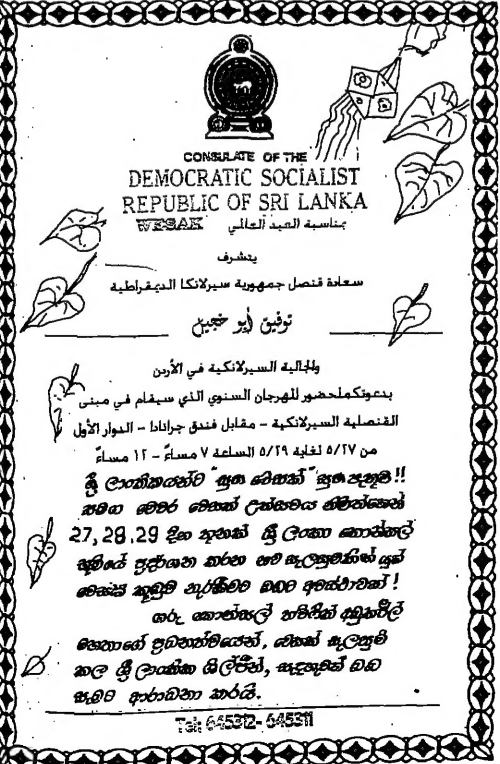 CONSULATE OF THE
DEMOCRATIC SOCIALIST
REPUBLIC OF SRI LANKA
بمناسبة العيد العالمي WESAK
يتشرف
سعادة قنصل جمهورية سيرلانكا الديمقراطية
توفيق أبو خجيل
والجالية السيرلانكية في الأردن
بدعوتكم لحضور المهرجان السنوي الذي سيقام في مبنى
القنصلية السيرلانكية - مقابل فندق جرانادا - الدوار الأول
من ٥/٢٧ لغاية ٥/٢٩ الساعة ٧ مساءً - ١٢ مساءً
ශ්‍රී ලාංකිකයන්ට "සුභ වෙසක්" සුභ පැතුම් !!
සමග මෙවර වෙසක් උත්සවය නිමිත්තෙන්
27, 28, 29 දින තුනක් ශ්‍රී ලංකා කොන්සල්
ප්‍රදර්ශන කරන
වෙසක් කූඩුව නැරඹීමට ඔබට අවස්ථාවක් !
ගරු කොන්සල් තව්ෆික්
මහතාගේ ප්‍රධානත්වයෙන්, වෙසක් සැලසුම්
කල ශ්‍රී ලාංකික ශිල්පීන්, සැදහැවත් ඔබ
සැමට ආරාධනා කරයි.
Tel: 645312- 645311